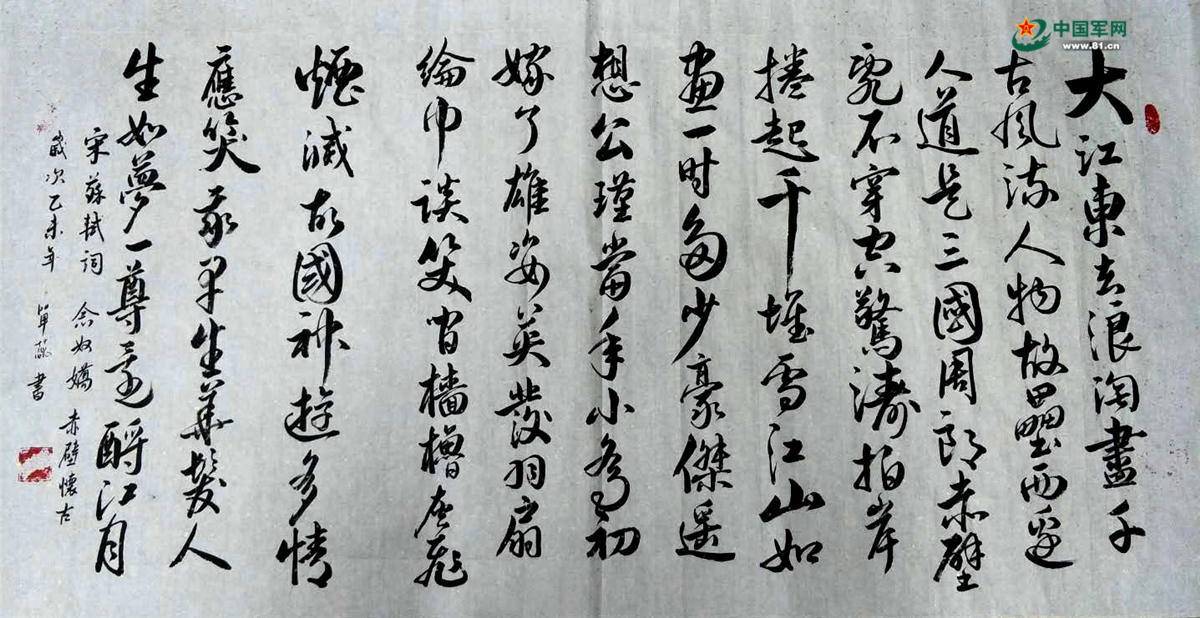 中国军网
www.81.cn
大江東去浪淘盡千
古風流人物故壘西邊
人道是三國周郎赤壁
亂石穿空驚濤拍岸
捲起千堆雪江山如
畫一时多少豪傑遥
想公瑾當年小喬初
嫁了雄姿英發羽扇
綸巾談笑间檣櫓灰飛
煙滅故國神遊多情
應笑我早生華髮人
生如夢一尊還酹江月
宋蘇軾詞 念奴嬌 赤壁懷古
歲次乙未年 單蕊書